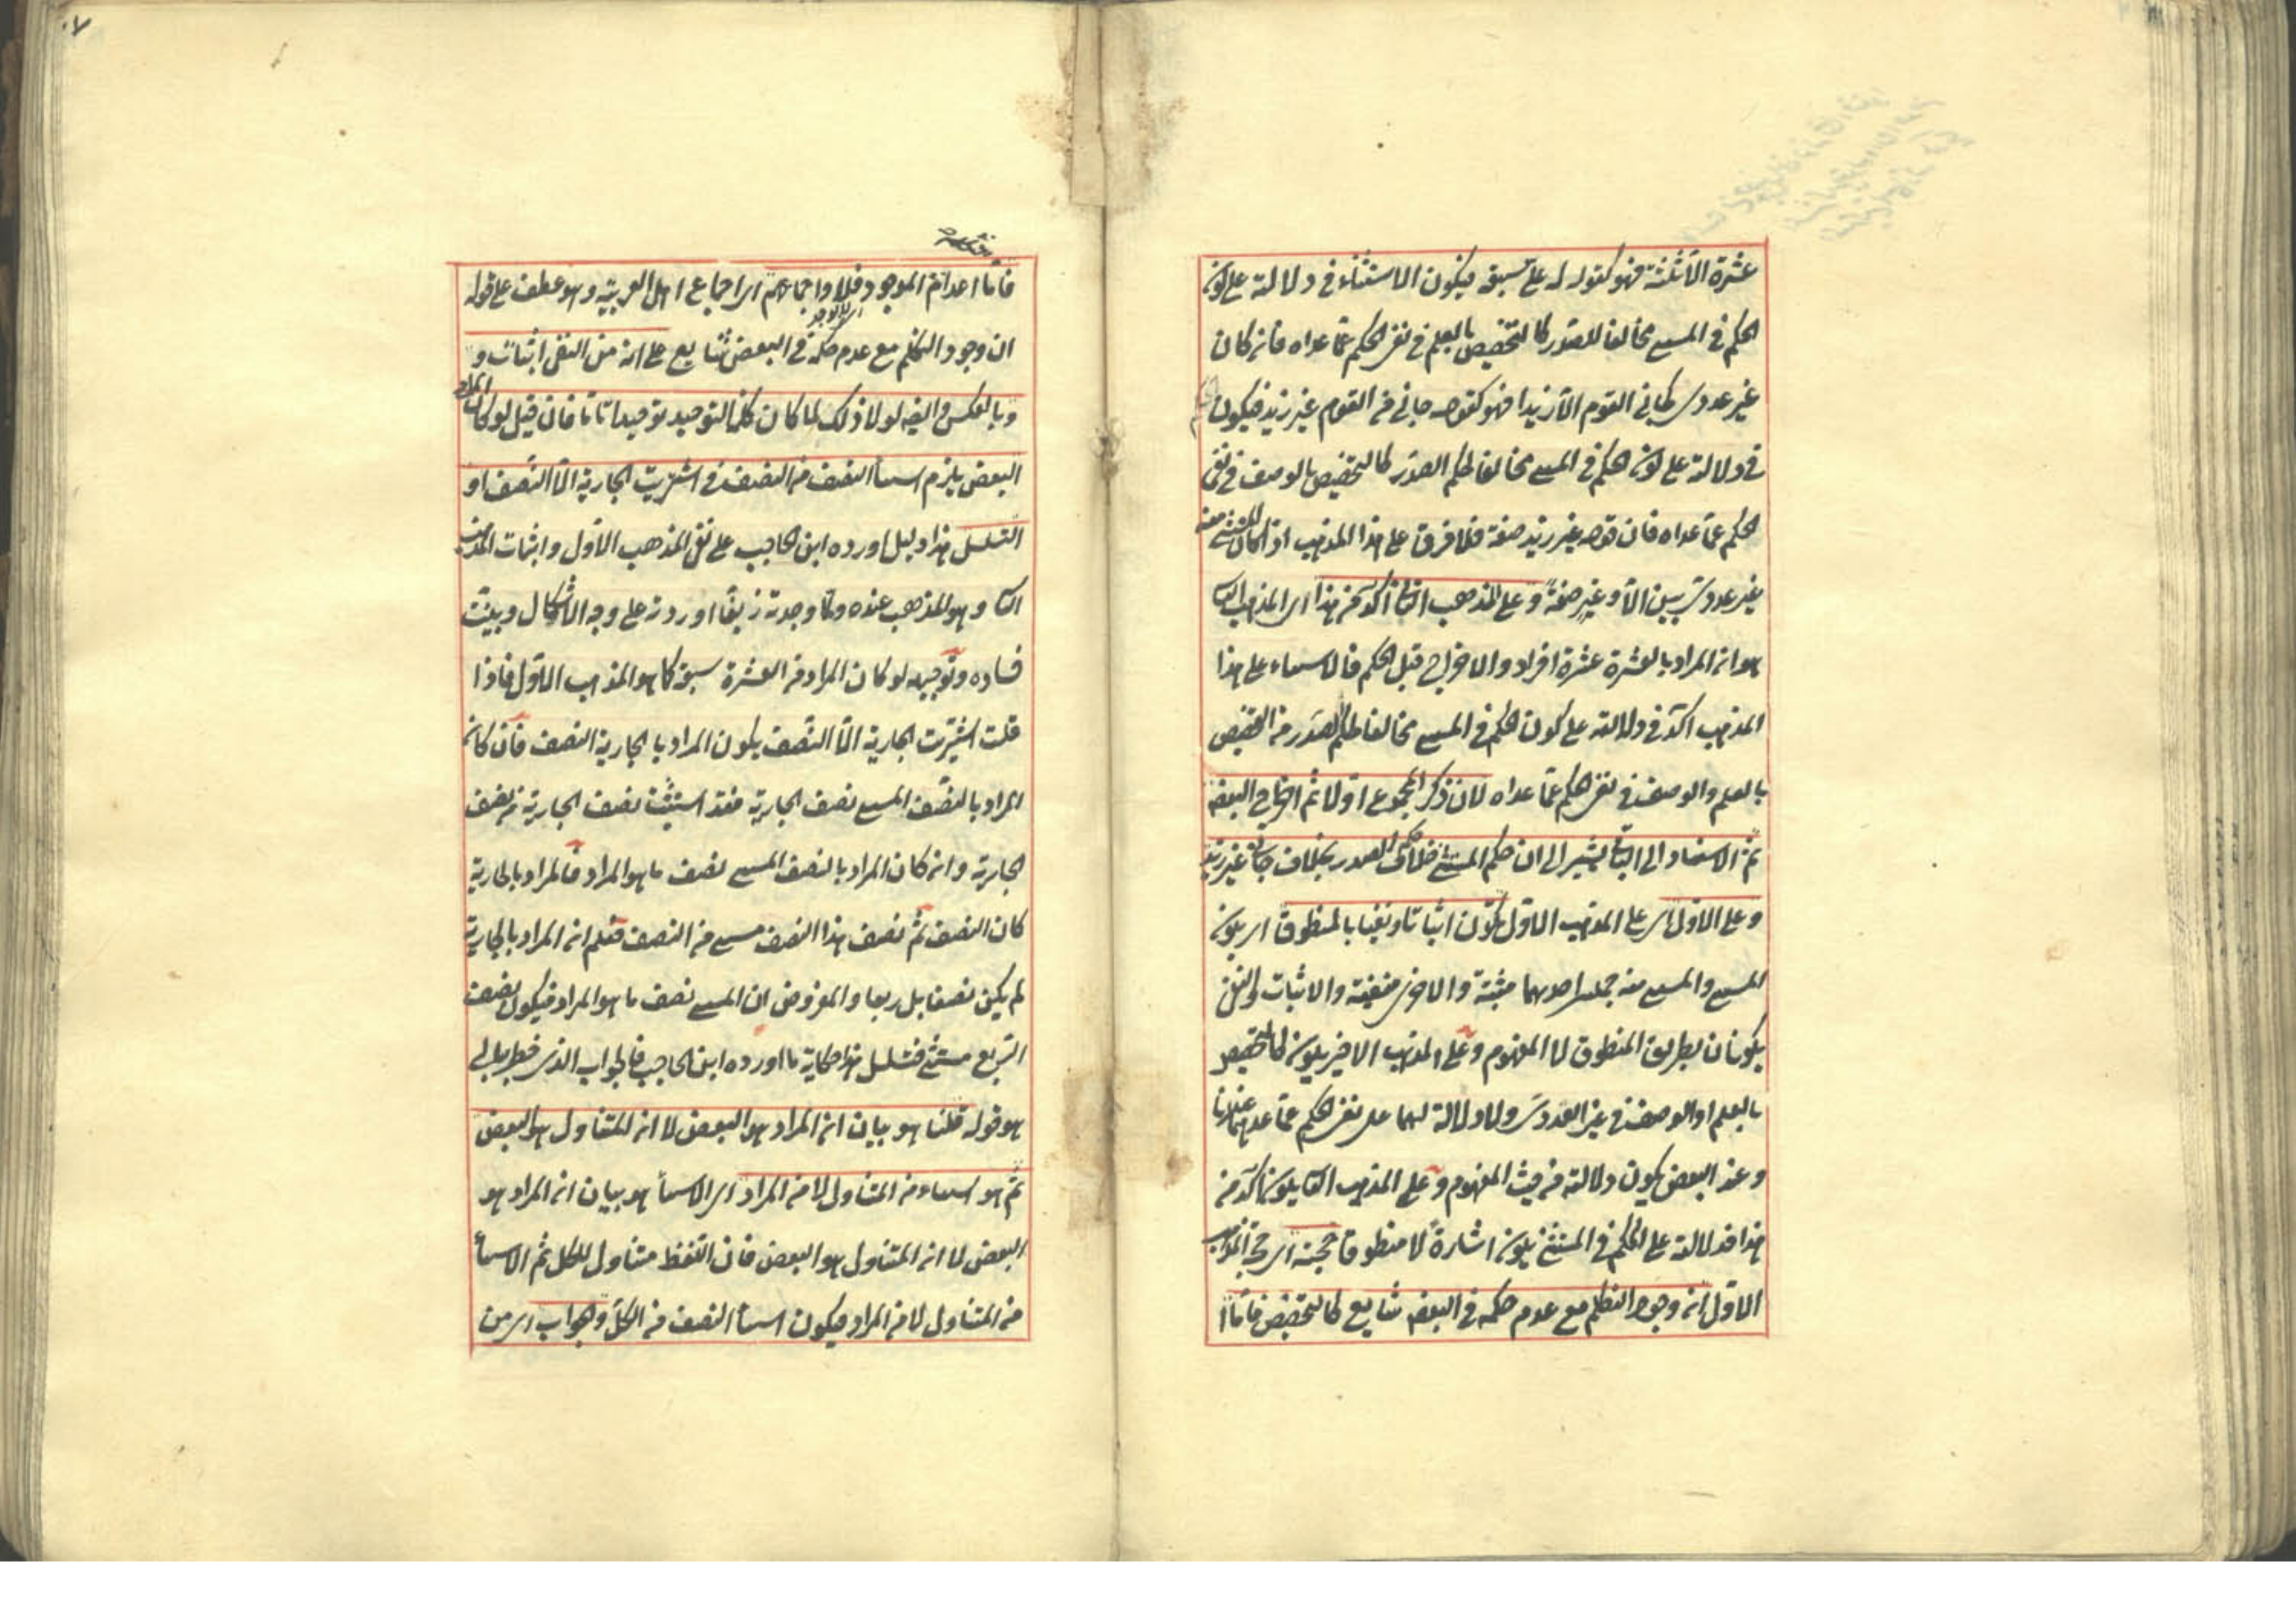 عشرة الا ثلثة فهو كقوله له على سبعة فيكون الاستثناء فى دلالته على كون
الحكم فى المستثنى مخالفا للصدر كالتخصيص بالعلم فى نفى الحكم عما عداه فان كان
غير عددى كجاءنى القوم الا زيدا فهو كقوله جاءنى من القوم غير زيد فيكون
فى دلالته على كون الحكم فى المستثنى مخالفا لحكم الصدر كالتخصيص بالوصف فى نفى
الحكم عما عداه فان قوله غير زيد صفة فلا فرق على هذا المذهب اذا كان المستثنى منه
غير عددى بين الا وغير صفة وعلى المذهب الثانى آكد من هذا اى المذهب الثانى
هو ان المراد بالعشرة عشرة افراد والاخراج قبل الحكم فالاستثناء على هذا
المذهب اكد فى دلالته على كون الحكم فى المستثنى مخالفا لحكم الصدر من التخصيص
بالعلم والوصف فى نفى الحكم عما عداه لان ذكر المجموع اولا ثم اخراج البعض
ثم الاسناد الى الباقى يشير الى ان حكم المستثنى خلاف حكم الصدر بخلاف جاءنى غير زيد
وعلى الاول اى على المذهب الاول يكون اثباتا ونفيا بالمنطوق اى يكون
المستثنى والمستثنى منه جملتين احدهما مثبتة والاخرى منفية والاثبات والنفى
يكونان بطريق المنطوق لا المفهوم وعلى المذهب الاخير يكون كالتخصيص
بالعلم او الوصف فى غير العددى ولا دلالة لهما على نفى الحكم عما عداهما عندنا
وعند البعض يكون دلالته من حيث المفهوم وعلى المذهب الثانى يكون آكد من
هذا فدلالته على الحكم فى المستثنى يكون اشارة لا منطوقا حجة اى حجة المذهب
الاول ان وجود التكلم مع عدم حكمه فى البعض شايع كالتخصيص فاما ا
فاما اعدام الموجود فلا واجماعهم اى اجماع اهل العربية وهو عطف على قوله
ان وجود التكلم مع عدم حكمه فى البعض شايع على انه من النفى اثبات و
وبالعكس وايضا لولا ذلك لما كان كلمة التوحيد توحيدا تاما فان قيل لو كان المراد
البعض يلزم استثناء النصف من النصف فى اشتريت الجارية الا النصف او
التسلسل هذا دليل اورده ابن الحاجب على نفى المذهب الاول واثبات المذهب
الثانى وهو المذهب عنده ولما وجدته زيفا اوردته على وجه الاشكال وبينت
فساده وتوجيهه لو كان المراد من العشرة سبعة كما هو المذهب الاول فاذا
قلت اشتريت الجارية الا النصف يكون المراد بالجارية النصف فان كان
المراد بالنصف المستثنى نصف الجارية فقد استثنيت نصف الجارية من نصف
الجارية وان كان المراد بالنصف المستثنى نصف ما هو المراد فالمراد بالجارية
كان النصف ثم نصف هذا النصف مستثنى من النصف فعلم ان المراد بالجارية
لم يكن نصفا بل ربعا والمفروض ان المستثنى نصف ما هو المراد فيكون نصف
الربع مستثنى فتسلسل هذا حكاية ما اورده ابن الحاجب فالجواب الذى خطر ببالى
هو قوله قلنا هو بيان ان المراد هو البعض لا ان المتناول هو البعض
ثم هو استثناء من المتناول لا من المراد اى الاستثناء هو بيان ان المراد هو
البعض لا ان المتناول هو البعض فان اللفظ متناول للكل ثم الاستثناء
من المتناول لا من المراد فيكون استثناء النصف من الكل وجواب اى من